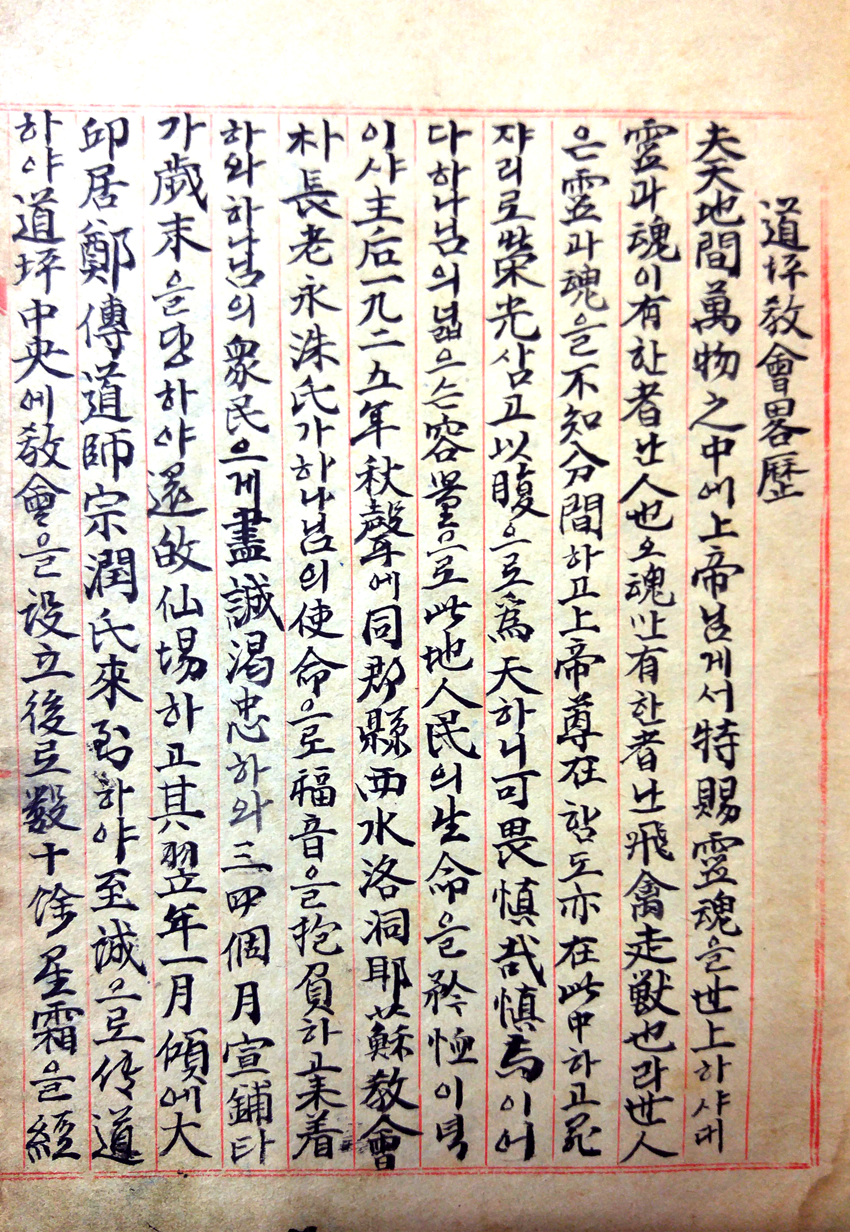 道坪敎會畧歷
夫天地間萬物之中에上帝님게서特賜靈魂을世上하샤대
靈과魂이有한者난人也오魂만有한者난飛禽走獸也라世人
은靈과魂을不知分間하고上帝尊在함도亦在此中하고
쟈리로榮光삼고以腹으로爲天하니可畏愼哉愼焉이어
다하나님의넓으슨容量으로此地人民의生命을矜恤이녁
이샤主后一九二五年秋聲에同郡縣西水洛洞耶蘇敎會
朴長老永洙氏가하나님의使命으로福音을抱負하고来着
하와하나님의衆民으게盡誠渴忠하와三四個月宣鋪타
가歲末을당하야還故仙場하고其翌年一月傾에大
邱居鄭傳道師宗潤氏來到하야至誠으로伝道
하야道坪中央에敎會을設立後로數十馀星霜을經